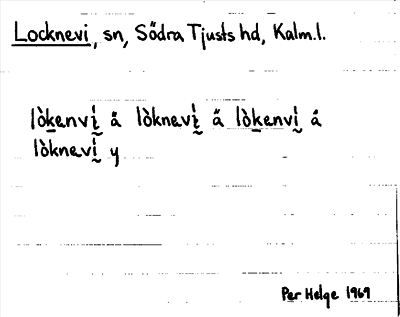 Locknevi, sn, Södra Tjusts hd, Kalm.l.
lòkenvi̬ å lòknevi̬ å lòkenvi̬ å
lòknevi̬ y
Per Helge 1969